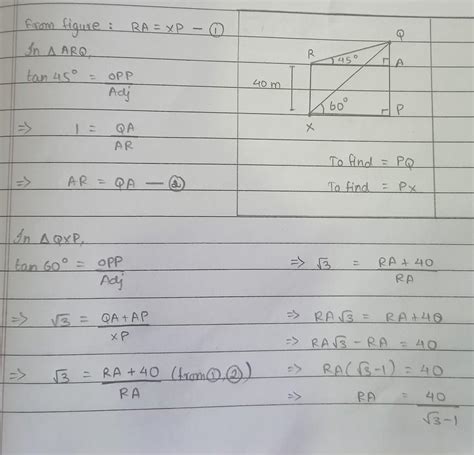 from figure : RA = XP — ①
In △ ARQ,
tan 45° = OPP / Adj
⇒ 1 = QA / AR
⇒ AR = QA — ②
Q
R
45°
A
40 m
60°
P
X
To find = PQ
To find = PX
In △ QXP,
tan 60° = OPP / Adj
⇒ √3 = QA + AP / XP
⇒ √3 = RA + 40 / RA (from ①, ②)
⇒ √3 = RA + 40 / RA
⇒ RA√3 = RA + 40
⇒ RA√3 - RA = 40
⇒ RA(√3 - 1) = 40
⇒ RA = 40 / √3 - 1